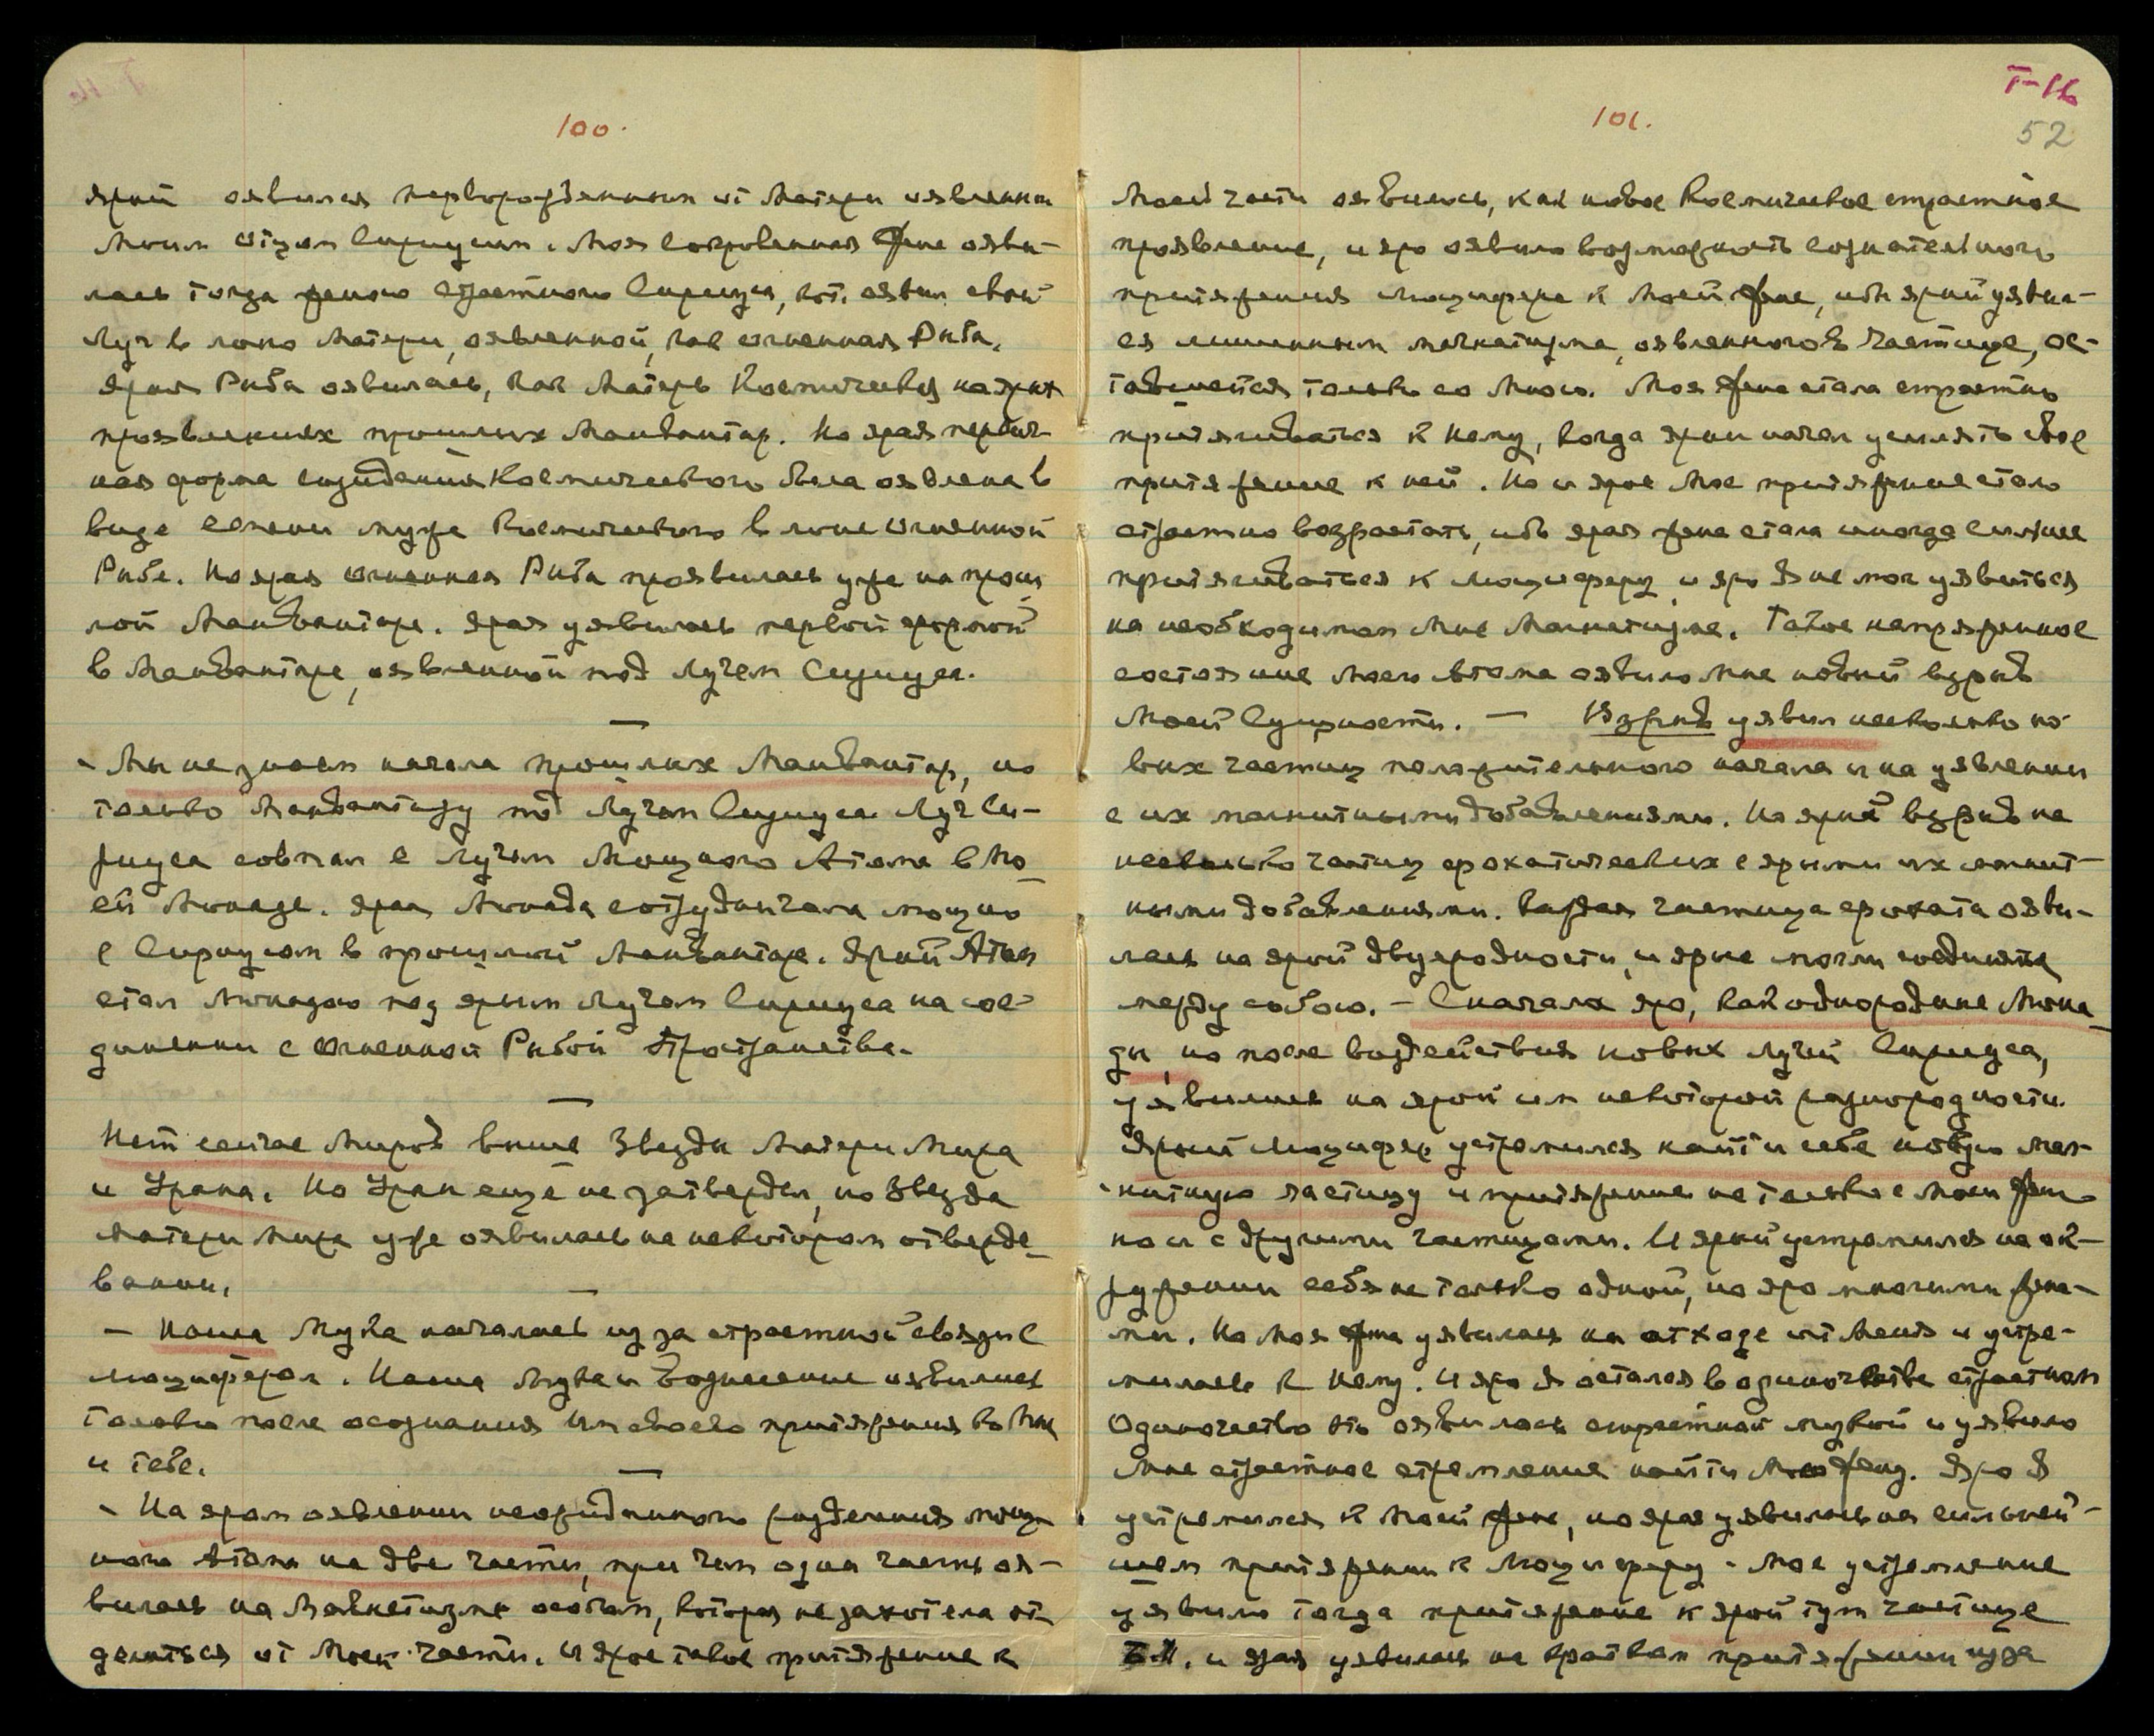 100.
ярый оявился перворожденным от Матери явленной
Моим Отцом Сириусом. Моя сокровенная Жена ояви-
лась тогда женою страстного Сириуса, кот. оявил свой
Луч в лоно Матери, оявленной, как огненная Рыба.
Ярая Рыба оявилась, как Матерь Космическая на ярых
проявлениях прошлых Манвантар. Но ярая первич-
ная форма созидания Космического была оявлена в
виде семени мужа Космического в лоне огненной
Рыбе. Но ярая огненная Рыба проявилась уже на прош-
лой Манвантаре. Ярая уявилась первой формой
в Манвантаре, оявленной под Лучем Сириуса.
- Мы не знаем начала прошлых Манвантар, но
только Манвантару под Лучем Сириуса. Луч Си-
риуса совпал с Лучем Мощного Атома в Мо-
ей Монаде. Ярая Монада сотрудничала мощно
с Сириусом в прошлой Манвантаре. Ярый Атом
стал Монадою под ярым Лучем Сириуса на сое-
динении с огненной Рыбой Пространства.
Нет сейчас Миров выше Звезды Матери Мира
и Урана. Но Уран еще не затвердел, но Звезда
Матери Мира уже оявилась на некотором отверде-
вании.
- Наша Мука началась из за страстной связи с
Люцифером. Наша Мука и Водительство явились
только после осознания Им своего притяжения ко Мне
и тебе.
- На яром оявлении неожиданного разделения мощ-
ного Атома на две части, при чем одна часть оя-
вилась на Магнетизме особом, которая не захотела от-
делиться от Моей части. И ярое такое притяжение к
101.
52
Моей части оявилось, как новое Космическое страстное
проявление, и яро оявило возможность сознательного
притяжения Люцифера к Моей Жене, ибо ярый уявил-
ся лишенным магнетизма, оявленного в частице, ос-
тавшейся только со Мною. Моя Жена стала страстно
притягиваться к Нему, когда ярый начал усилять свое
притяжение к ней. Но и ярое Мое притяжение стало
страстно возрастать, ибо ярая жена стала иногда сильнее
притягиваться к Люциферу и яро Я не мог уявиться
на необходимом Мне Магнетизме. Такое напряженное
состояние Моего Атома оявило Мне новый взрыв
Моей Сущности. — Взрыв уявил несколько но-
вых частиц положительного начала и на уявлении
с их магнитными добавлениями. Но ярый взрыв на
несколько частиц срокатических с ярыми их магнит-
ными добавлениями. Каждая частица оявилась
лась на ярой двуродности, и ярые могли соединяться
между собою. - Сначала яро, как однородные Мона-
ды, но после воздействия новых Лучей Сириуса,
уявились на ярой им некоторой разнородности.
Ярый Люцифер устремился найти себе новую маг-
нитную частицу и притяжение не только с Моей Женой
но и с другими частицами. И ярый устремился на ок-
ружении себя не только одной, но яро многими жена-
ми. Но Моя Жена уявилась на отходе от Меня и устре-
милась к Нему. И яро Я остался в одиночестве страстном
Одиночество это оявилось страстной мукой и уявило
Мне страстное стремление найти Мою Жену. Яро Я
устремился к Моей Жене, но ярая уявилась на сильней-
шем притяжении к Люциферу. Мое устремление
уявило тогда притяжение к ярой тут частице
и ярая уявилась на кратком притяжении из за